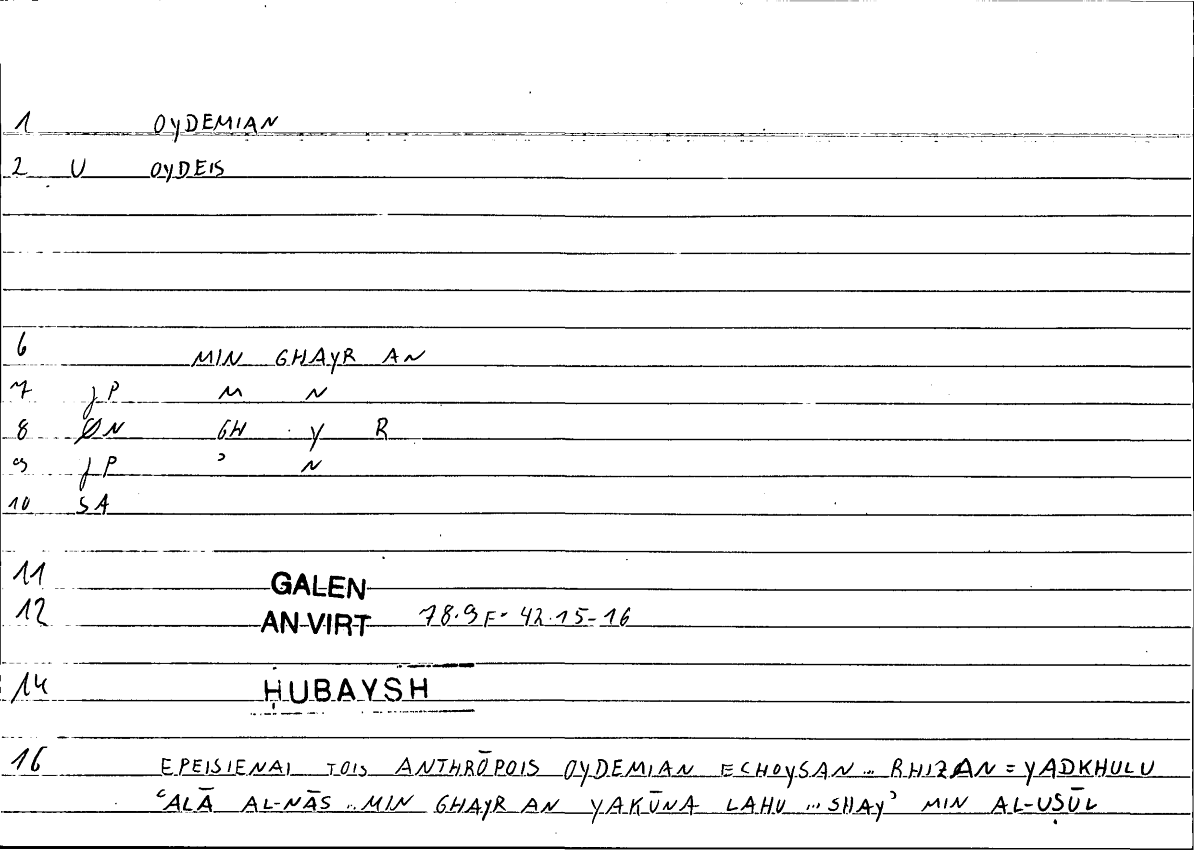 1 OYDEMIAN
2 U OYDEIS
6 MIN GHAYR AN
7 JP M N
8 ØN GH Y R
9 JP ʾ N
10 SA
11 GALEN
12 AN VIRT 78.9F- 42.15-16
14 ḤUBAYSH
16 EPEISIENAI TOIS ANTHRŌPOIS OYDEMIAN ECHOYSAN... RHIZAN = YADKHULU
ʿALĀ AL-NĀS...MIN GHAYR AN YAKŪNA LAHU ...SHAYʾ MIN AL-UṢŪL